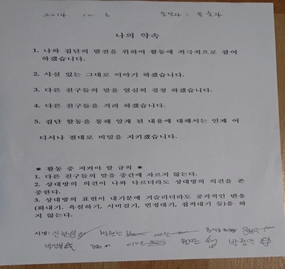 나의 약속
1. 나와 집단의 발전을 위하여 활동에 적극적으로 참여
하겠습니다.
2. 사실 있는 그대로 이야기 하겠습니다.
3. 다른 친구들의 말을 열심히 경청 하겠습니다.
4. 다른 친구들을 격려 하겠습니다.
5. 집단 활동을 통해 알게 된 내용에 대해서는 언제 어
디서나 절대로 비밀을 지키겠습니다.
※ 활동 중 지켜야 할 규칙 ※
1. 다른 친구들의 말을 중간에 자르지 않는다.
2. 상대방의 의견이 나와 다르더라도 상대방의 의견을 존
중한다.
3. 상대방의 표현이 내기분에 거슬리더라도 공격적인 반응
(화내기, 욕설하기, 시비걸기, 인정대기, 집적대기 등)을 하
지 않는다.
서명: